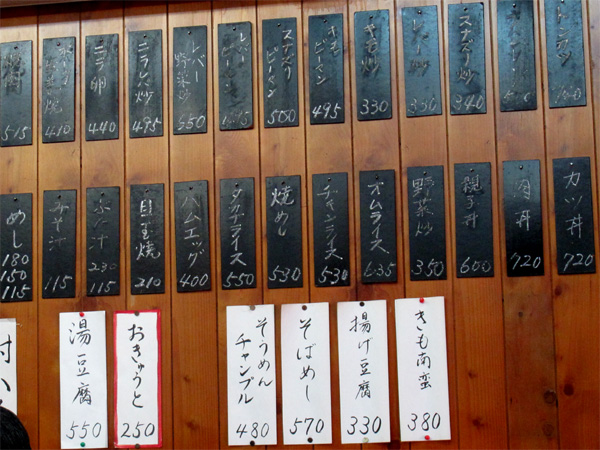 トンカツ
スナズリ炒
340
レバー炒
330
キモ炒
330
キモ
ピーマン
495
スナズリ
ピーマン
500
レバー
ピーマン
レバー
野菜炒
550
ニラレバ炒
495
ニラ卵
440
410
515
カツ丼
720
肉丼
720
親子丼
600
野菜炒
350
オムライス
635
チャンライス
530
焼めし
530
550
ハムエッグ
400
目玉焼
210
230
115
みそ汁
115
めし
180
150
115
きも南蛮
380
揚げ豆腐
330
そばめし
570
そうめん
チャンプル
480
おきゅうと
250
湯豆腐
550